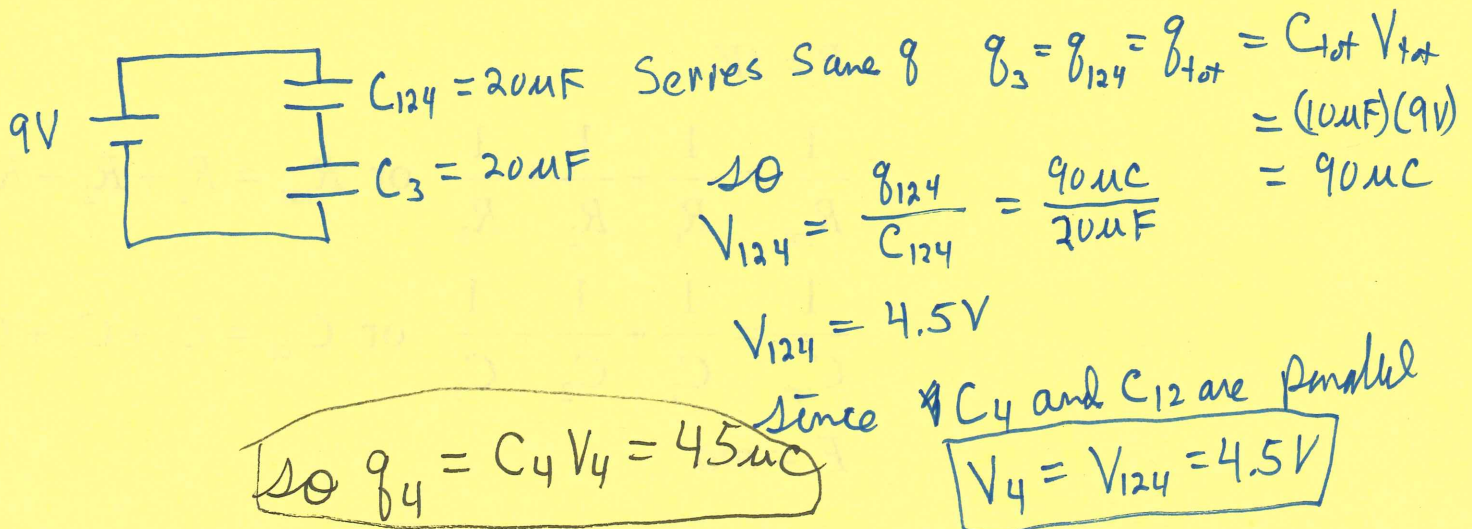 9V
C₁₂₄ = 20μF
C₃ = 20μF
Series Same q q₃ = q₁₂₄ = q_tot = C_tot V_tot
= (10μF)(9V)
= 90μC
so
V₁₂₄ = q₁₂₄ / C₁₂₄ = 90μC / 20μF
V₁₂₄ = 4.5V
since C₄ and C₁₂ are parallel
V₄ = V₁₂₄ = 4.5V
so q₄ = C₄V₄ = 45μC